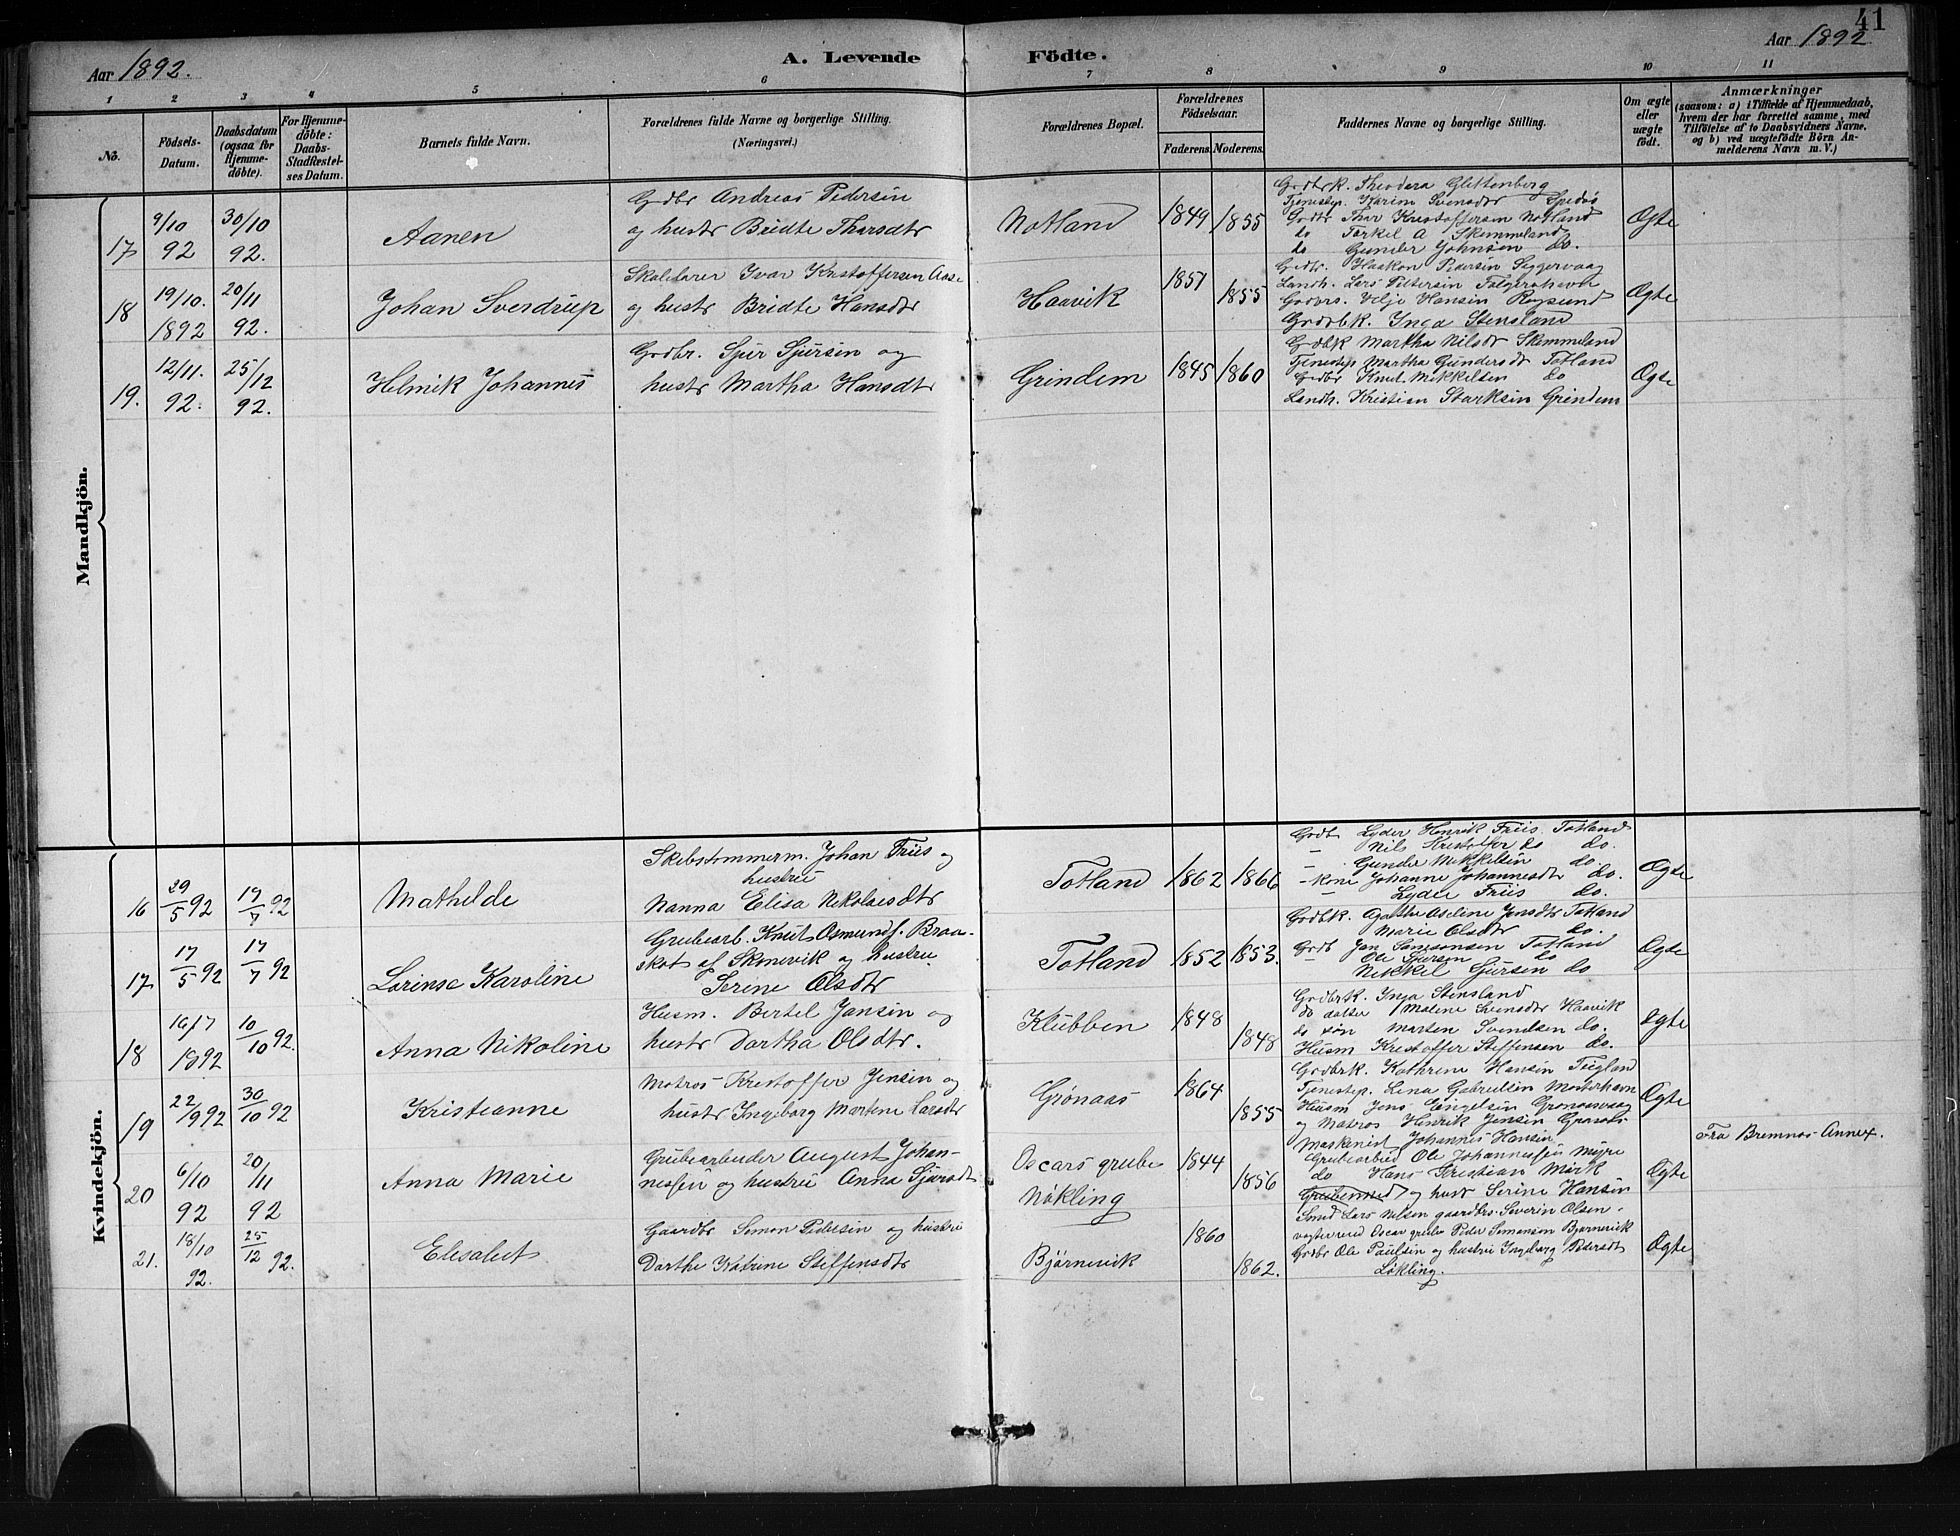 41
Aar 1892.
A. Levende
Födte.
Aar 1892
1 2 3 4 5 6 7 8 9 10 11
No.
Födsels-
Datum.
Daabsdatum
(ogsaa for
Hjemme-
døbte).
For Hjemme-
døbte:
Daabs-
Stadfæstel-
ses Datum.
Barnets fulde Navn.
Forældrenes fulde Navne og borgerlige Stilling.
(Næringsvei.)
Forældrenes Bopæl.
Forældrenes
Födselsaar.
Faderens. Moderens.
Faddernes Navne og borgerlige Stilling.
Om ægte
eller
uægte
födt.
Anmærkninger
(saasom: a) i Tilfælde af Hjemmedaab,
hvem der har forrettet samme, med
Tilföielse af to Daabsvidners Navne,
og b) ved uægtefödte Börn An-
melderens Navn m. V.)
Mandkjön.
17
9/10
92
30/10
92.
Aanen
Gdbr Andreas Pedersen
og hustr Bridte Thorsdtr
Notland
1849
1855
Gdbrk. Theodora Glettenberg
Tjenestep. Karim Svensdtr
Grdbr Thor Kristoffersen Notland
do Torkel A Skemmeland
do Gunder Johnsen do.
Ægte
18
19/10.
1892
20/11
92.
Johan Sverdrup
Skolelærer Ivar Kristoffersen Aase
og hustr Bridte Hansdtr
Haavik
1851
1855
Grdbr. Haakon Pedersen Siggervaag
Landh. Lars Pettersen
Gardbrs. Vilje Hansen Røgsund
Grdbk. Inga Stensland
Ægte
19.
12/11.
92.
25/12
92.
Helmik Johannes
Grdbr. Sjur Sjursen og
hustr Martha Hansdtr
Grindem
1845
1860
Grdbk Martha Nilsdr Skimmeland
Tjenestep Martha Gundersdt Totland
Grdbr Knut Mikkelsen do
Landh. Kristian Starksen Grindem
Ægte
Kvindekjön.
16
29/5 92
17/7 92
Mathilde
Skibstømmerm. Johan Friis og
hustru
Nanna Elisa Nikolaisdtr
Totland
1862
1866
Grdb Lyder Henrik Friis Totland
— Nils Kristoffer do do.
— Gunder Mikkelsen do.
— kone Johanne Johannesdtr do.
— Lyder Friis do.
Ægte
17
17/5 92
17/7 92
Lorinse Karoline
Grubearb. Knut Osmundf. Braa-
skat af Skonevik og hustru
Serine Olsdtr
Totland
1852
1853.
Grdbk. Agathe Aseline Jensdtr Totland
Marie Olsdtr do.
Grdb Jan Samsonsen Totland
— Ole Sjursen do
Mikkel Sjursen do
Ægte
18
16/7
1892
10/10 92.
Anna Nikoline
Husm. Bertel Jansen og
hustr Dortha Olsdtr.
Klubben
1848
1848
Grdbrk. Inga Stensland
do datter Malene Svensdtr Haavik
do søn Marten Svendsen do.
Husm Kristoffer Steffensen do.
Ægte
19
22/9 92
30/10 92
Kristianne
Matros Kristoffer Jensen og
hustr Ingeborg Martene Larsdtr
Grønaas
1864
1855
Grdbrk. Kathrine Hansen Tiegland
Tjenestep. Lina Gabrielsen Mosterhavn
Husm Jens Engelsen Grønaasvaag
og Matros Henrik Jensen Grønaas
Ægte
20
6/10
92
20/11
92
Anna Marie
Grubearbeider August Johan-
nessen og hustru Anna Sjursdt
Oscars grube
Nökling
1844
1856
Maskinist Johannes Hansen
Grubearbeid Ole Johannessen Myre
do Hans Kristian Mørk
Grubesmed og hustr Serine Hansen
Smed Lars Nilsen gaardbrs. Severin Olsen
Ægte
Fra Bremnæs Annex.
21.
18/10
92.
25/12 92.
Elisabet
Gaardbr Simon Pedersen og hustru
Dorthe Katrine Steffensdtr
Bjørnevik
1860
1862.
vogter ved Oscar grube Peder Simonsen Bjørnevik
Grdbr Ole Paulsen og hustru Ingeborg Pedersdt
Løkling.
Ægte